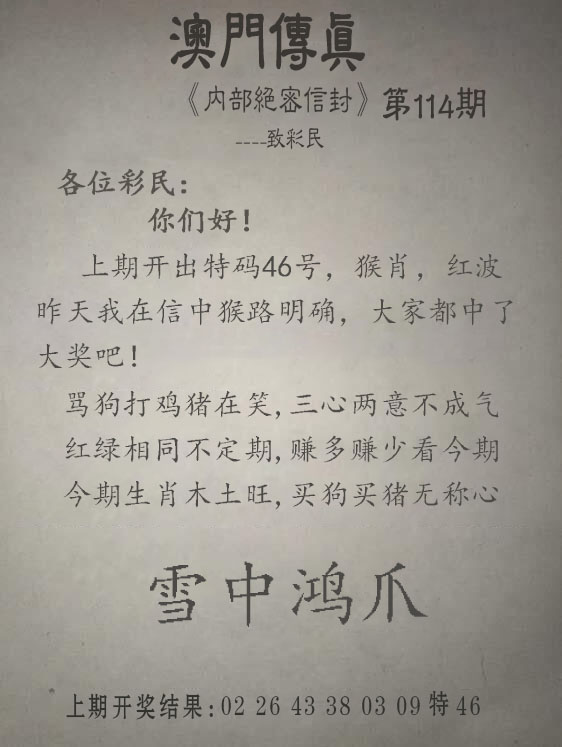 澳門傳眞
《内部絕密信封》第114期
----致彩民
各位彩民:
你们好!
上期开出特码46号, 猴肖, 红波
昨天我在信中猴路明确, 大家都中了
大奖吧!
骂狗打鸡猪在笑,三心两意不成气
红绿相同不定期,赚多赚少看今期
今期生肖木土旺,买狗买猪无称心
雪中鸿爪
上期开奖结果:02 26 43 38 03 09 特 46